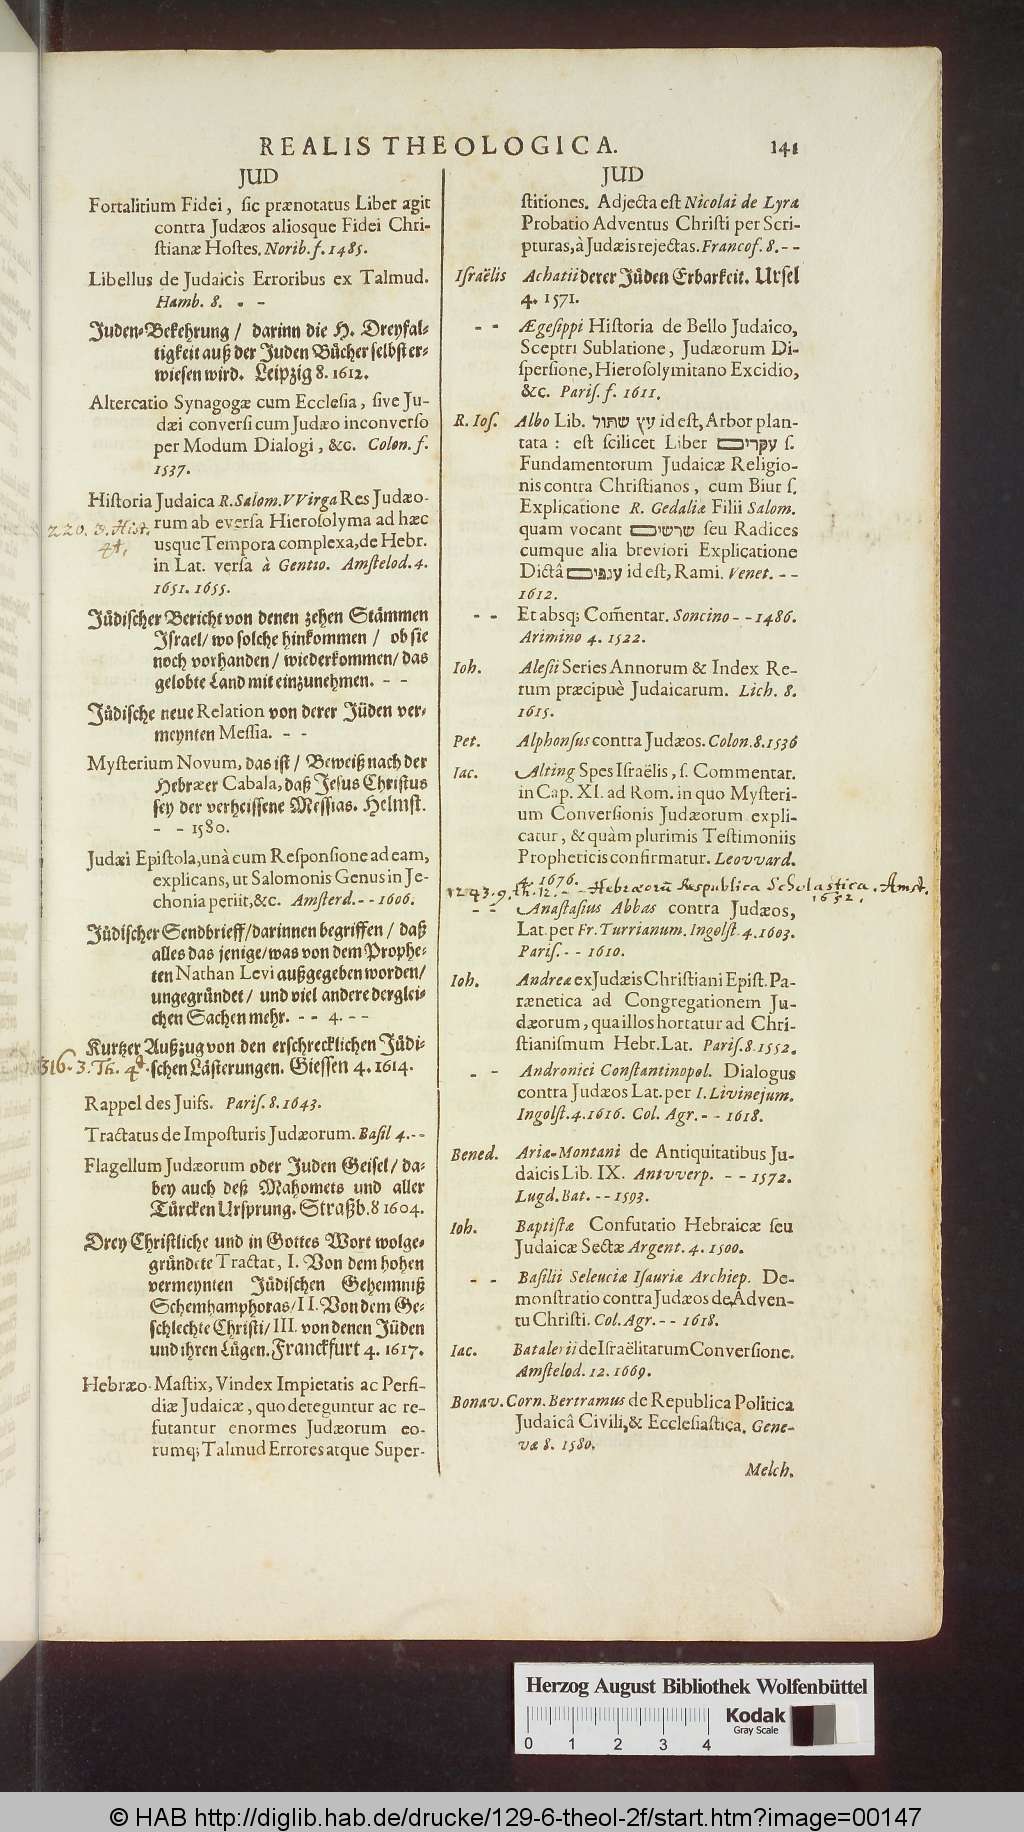 REALIS THEOLOGICA. 141
JUD
Fortalitium Fidei, sic prænotatus Liber agit
contra Judæos aliosque Fidei Chri-
stianæ Hostes. Norib. f. 1485.
Libellus de Judaicis Erroribus ex Talmud.
Hamb. 8. - -
Juden-Bekehrung / darinn die H. Dreyfal-
tigkeit auß der Juden Bücher selbst er-
wiesen wird. Leipzig 8. 1612.
Altercatio Synagogæ cum Ecclesia, sive Ju-
dæi conversi cum Judæo inconverso
per Modum Dialogi, &c. Colon. f.
1537.
Historia Judaica R. Salom. VVirga Res Judæo-
220. 3. Hist. rum ab eversa Hierosolyma ad hæc
4t. usque Tempora complexa, de Hebr.
in Lat. versa à Gentio. Amstelod. 4.
1651. 1655.
Jüdischer Bericht von denen zehen Stämmen
Israel/ wo solche hinkommen / ob sie
noch vorhanden / wiederkommen / das
gelobte Land mit einzunehmen. - -
Jüdische neue Relation von derer Jüden ver-
meynten Messia. - -
Mysterium Novum, das ist / Beweiß nach der
Hebræer Cabala, daß Jesus Christus
sey der verheissene Messias. Helmst.
- - 1580.
Judæi Epistola, unà cum Responsione ad eam,
explicans, ut Salomonis Genus in Je-
chonia periit, &c. Amsterd. - - 1606.
Jüdischer Sendbrieff / darinnen begriffen / daß
alles das jenige / was von dem Prophe-
ten Nathan Levi außgegeben worden /
ungegründet / und viel andere derglei-
chen Sachen mehr. - - 4. - -
Kurtzer Außzug von den erschrecklichen Jüdi-
316. 3. Th. 4º. schen Lästerungen. Giessen 4. 1614.
Rappel des Juifs. Paris. 8. 1643.
Tractatus de Imposturis Judæorum. Basil 4. - -
Flagellum Judæorum oder Juden Geisel / da-
bey auch deß Mahomets und aller
Türcken Ursprung. Straßb. 8 1604.
Drey Christliche und in Gottes Wort wolge-
gründete Tractat, I. Von dem hohen
vermeynten Jüdischen Geheimniß
Schemhamphoras / II. Von dem Ge-
schlechte Christi / III. von denen Jüden
und ihren Lügen. Franckfurt 4. 1617.
Hebræo-Mastix, Vindex Impietatis ac Perfi-
diæ Judaicæ, quo deteguntur ac re-
futantur enormes Judæorum eo-
rumq; Talmud Errores atque Super-
JUD
stitiones. Adjecta est Nicolai de Lyra
Probatio Adventus Christi per Scri-
pturas, à Judæis rejectas. Francof. 8. - -
Israëlis Achatii derer Jüden Erbarkeit. Ursel
4. 1571.
- - Ægesippi Historia de Bello Judaico,
Sceptri Sublatione, Judæorum Di-
spersione, Hierosolymitano Excidio,
&c. Paris. f. 1611.
R. Ios. Albo Lib. עץ שתול id est, Arbor plan-
tata : est scilicet Liber עקרים s.
Fundamentorum Judaicæ Religio-
nis contra Christianos, cum Biur s.
Explicatione R. Gedaliæ Filii Salom.
quam vocant שרשים seu Radices
cumque alia breviori Explicatione
Dictâ ענפים id est, Rami. Venet. - -
1612.
- - Et absq; Com̃entar. Soncino - - 1486.
Arimino 4. 1522.
Ioh. Alesii Series Annorum & Index Re-
rum præcipuè Judaicarum. Lich. 8.
1615.
Pet. Alphonsus contra Judæos. Colon. 8. 1536
Iac. Alting Spes Israëlis, s. Commentar.
in Cap. XI. ad Rom. in quo Mysteri-
um Conversionis Judæorum expli-
catur, & quàm plurimis Testimoniis
Propheticis confirmatur. Leovvard.
4. 1676.
1243. 9. Th. 12. - - Hebræorū Respublica Scholastica. Amst.
1652.
- - Anastasius Abbas contra Judæos,
Lat. per Fr. Turrianum. Ingolst. 4. 1603.
Paris. - - 1610.
Ioh. Andrea ex Judæis Christiani Epist. Pa-
rænetica ad Congregationem Ju-
dæorum, qua illos hortatur ad Chri-
stianismum Hebr. Lat. Paris. 8. 1552.
- - Andronici Constantinopol. Dialogus
contra Judæos Lat. per I. Livinejum.
Ingolst. 4. 1616. Col. Agr. - - 1618.
Bened. Aria-Montani de Antiquitatibus Ju-
daicis Lib. IX. Antvverp. - - 1572.
Lugd. Bat. - - 1593.
Ioh. Baptistæ Confutatio Hebraicæ seu
Judaicæ Sectæ Argent. 4. 1500.
- - Basilii Seleuciæ Isauriæ Archiep. De-
monstratio contra Judæos de Adven-
tu Christi. Col. Agr. - - 1618.
Iac. Batalerii de Israëlitarum Conversione.
Amstelod. 12. 1669.
Bonav. Corn. Bertramus de Republica Politica
Judaicâ Civili, & Ecclesiastica. Gene-
væ 8. 1580.
Melch.
Herzog August Bibliothek Wolfenbüttel
Kodak
Gray Scale
0 1 2 3 4
© HAB http://diglib.hab.de/drucke/129-6-theol-2f/start.htm?image=00147